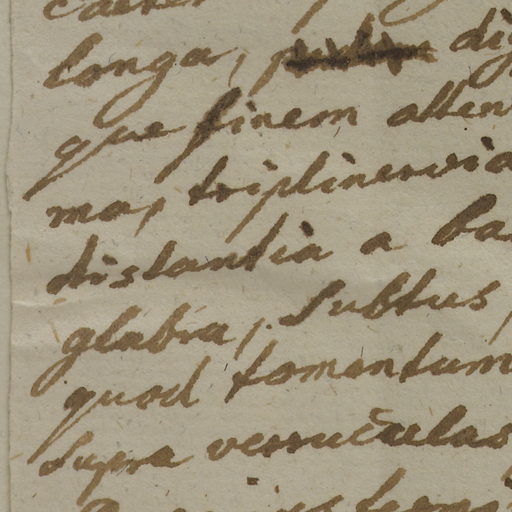 longa, di
que finem atten
ma, triplinervia
distantia a ba
glabra, subtus,
quod tomentum
supra verruculas